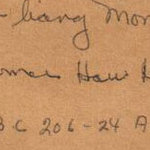 - liang Mon
omas Haw H
BC 206-24 A